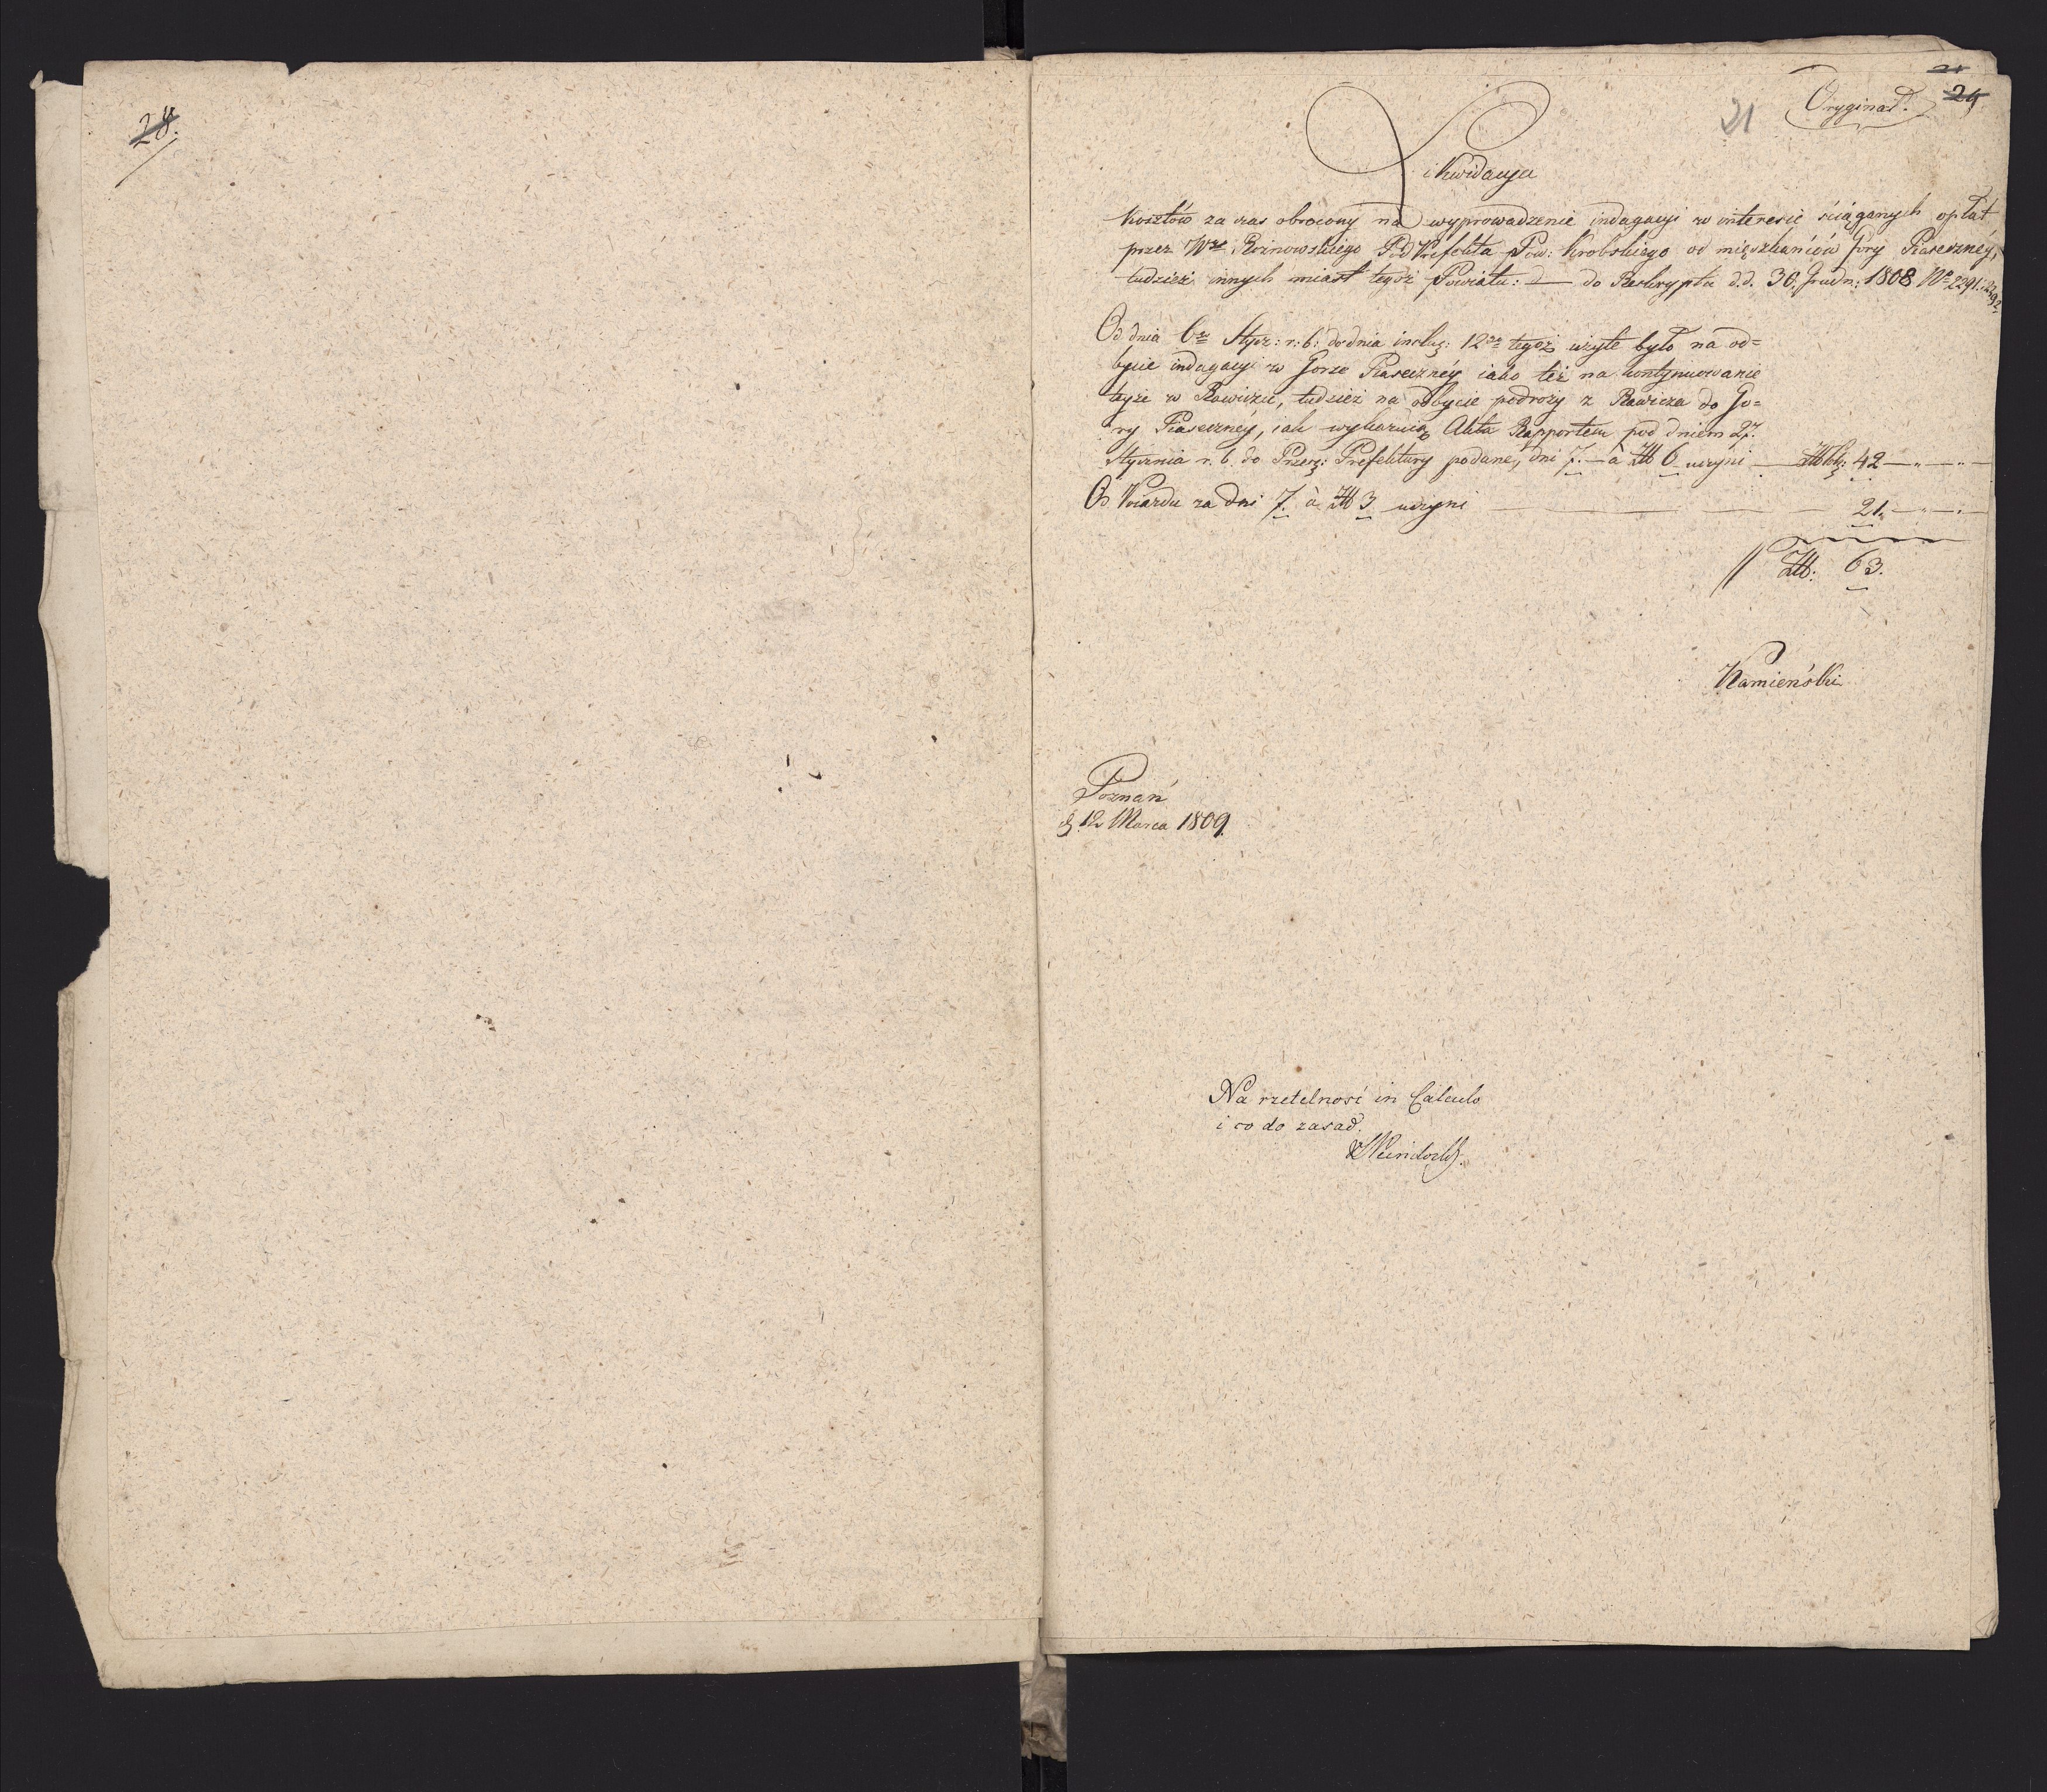 28.
24
21
Oryginał.
Likwidacya
kosztów za czas obrocony na wyprowadzenie indagacyi w interesie ściąganych opłat
przez Wgo Roznowskiego PodPrefekta Pow: Krobskiego od mięszkańców Góry Piaseczney,
tudzież innych miast tegoż Powiatu: do Reskryptu d.d. 30. Grudn: 1808 No 2291.
Od dnia 6go Stycz: r: b: do dnia inclus: 12go tegoż użyte było na od=
bycie indagacyi w Gorze Piaseczney iako też na kontynuowanie
teyże w Rawiczu, tudzież na odbycie podroży z Rawicza do Go=
ry Piaseczney, iak wykazuią Akta Rapportem pod dniem 27.
Stycznia r. b. do Prześ: Prefektury podane, dni 7. à Zł 6 czyni 42
Od dni 7. à Zł 3 czyni 21.
Zł: 63.
Kamieński
Poznań
d. 12 Marca 1809.
Na rzetelność in Calculo
i co do zasad.